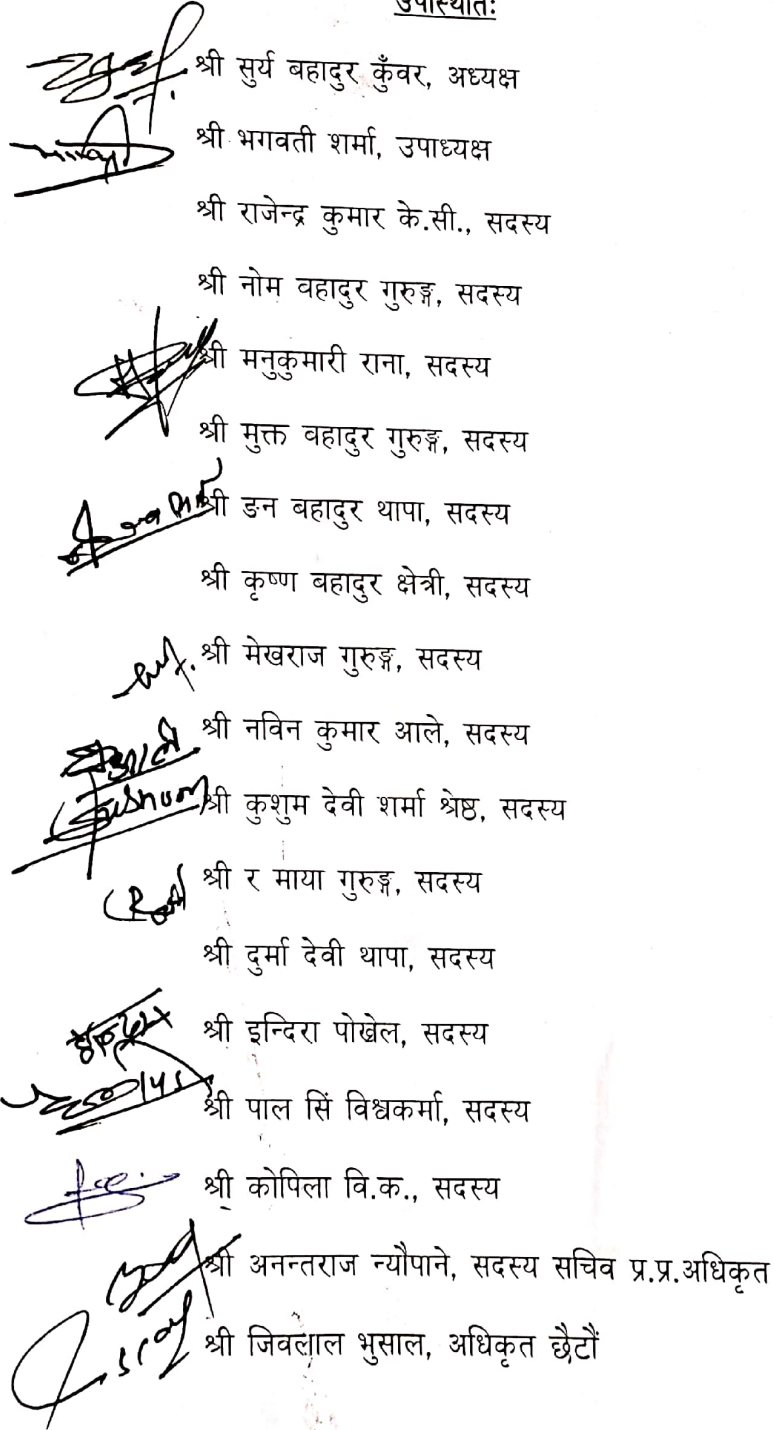 उपस्थितिः
श्री सुर्य बहादुर कुँवर, अध्यक्ष
श्री भगवती शर्मा, उपाध्यक्ष
श्री राजेन्द्र कुमार के.सी., सदस्य
श्री नोम वहादुर गुरुङ्ग, सदस्य
श्री मनुकुमारी राना, सदस्य
श्री मुक्त वहादुर गुरुङ्ग, सदस्य
श्री ङन बहादुर थापा, सदस्य
श्री कृष्ण बहादुर क्षेत्री, सदस्य
श्री मेखराज गुरुङ्ग, सदस्य
श्री नविन कुमार आले, सदस्य
श्री कुशुम देवी शर्मा श्रेष्ठ, सदस्य
श्री र माया गुरुङ्ग, सदस्य
श्री दुर्मा देवी थापा, सदस्य
श्री इन्दिरा पोखेल, सदस्य
श्री पाल सिं विश्वकर्मा, सदस्य
श्री कोपिला वि.क., सदस्य
श्री अनन्तराज न्यौपाने, सदस्य सचिव प्र.प्र.अधिकृत
श्री जिवलाल भुसाल, अधिकृत छैटौं